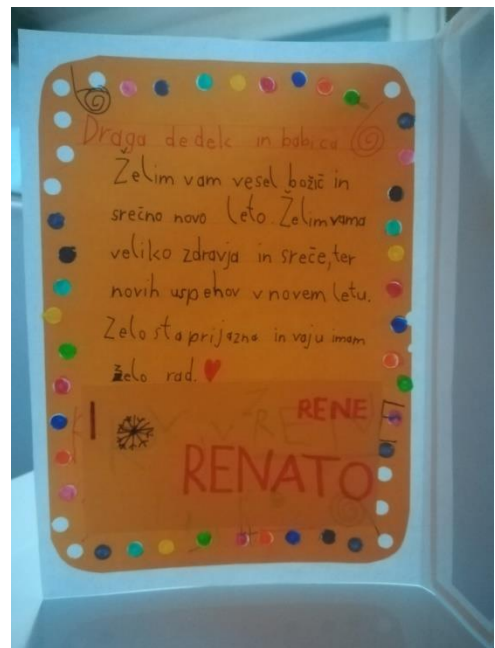 Draga dedek in babica
Želim vam vesel božič in
srečno novo leto. Želim vama
veliko zdravja in sreče, ter
novih uspehov v novem letu.
Zelo sta prijazna in vaju imam
želo rad.
RENE
RENATO